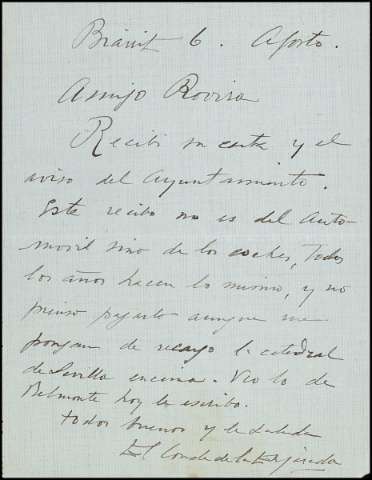 Biárrit 6. Agosto.
Amigo Rovira
Recibí su carta y el
aviso del Ayuntamiento.
Este recibo no es del Auto-
movil sino de los coches, Todos
los años hacen lo mismo, y no
pienso pagarlo aunque me
pongan de recargo la catedral
de Sevilla encima. Veo lo de
Belmonte hoy le escribo.
Todos buenos y le saluda
El Conde de la